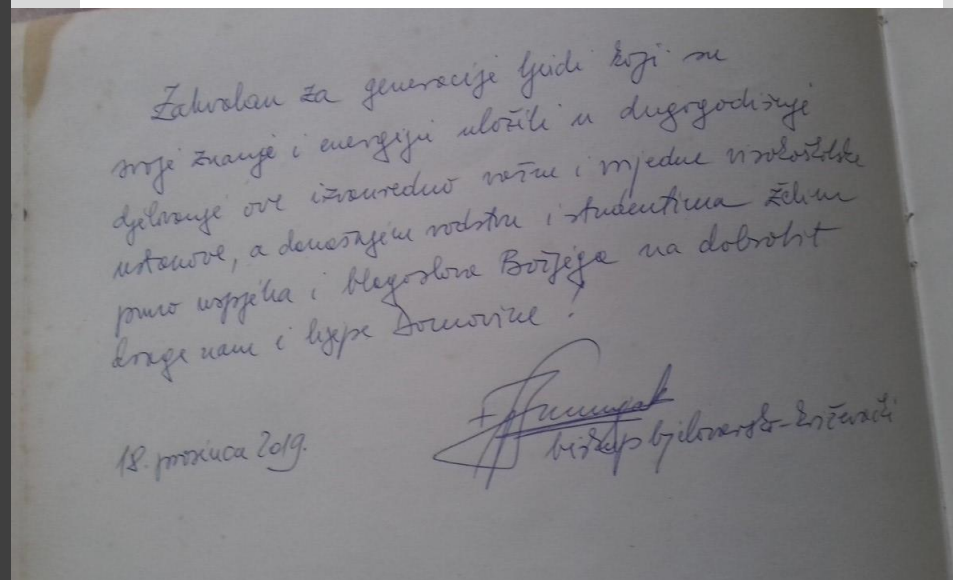 Zahvalan za generacije ljudi koji su
svoje znanje i energiju uložili u dugogodišnje
djelovanje ove izvanredno važne i vrijedne visokoškolske
ustanove, a današnjem vodstvu i studentima želim
puno uspjeha i blagoslova Božjega na dobrobit
drage nam i lijepe Domovine!
18. prosinca 2019.
biskup bjelovarsko-križevački